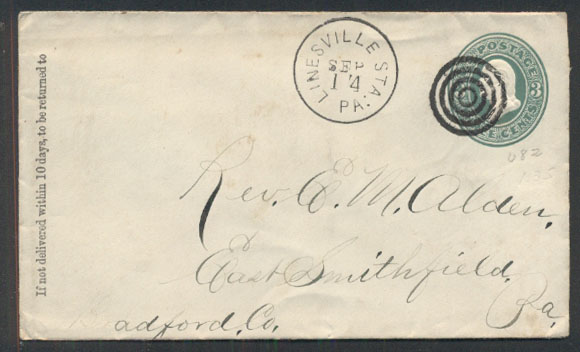 If not delivered within 10 days, to be returned to
LINESVILLE STA.
SEP
14
PA.
POSTAGE
3
CENTS
U82
135
Rev. E. M. Alden.
East Smithfield,
Pa.
adford. Co.